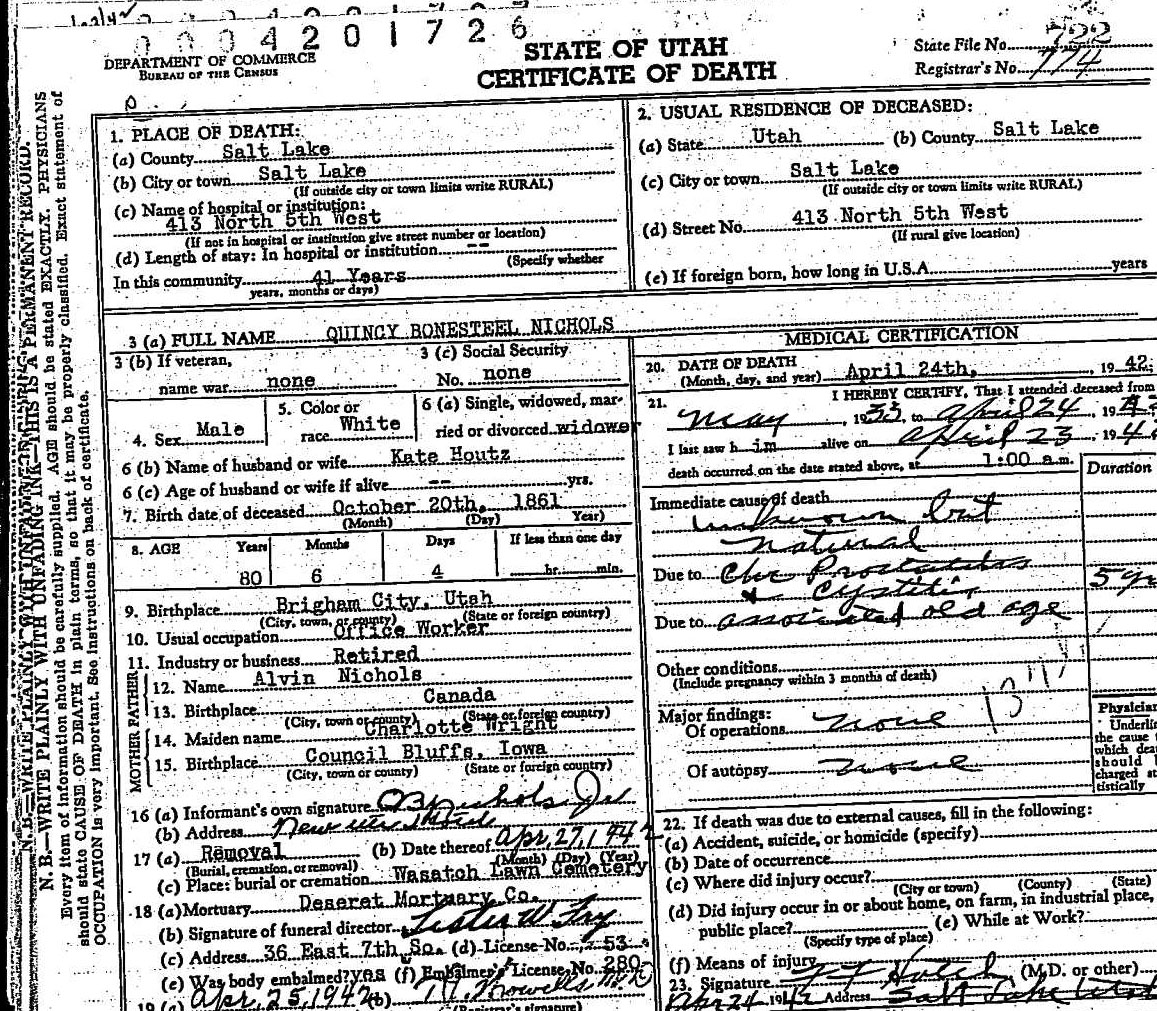 0004201726
DEPARTMENT OF COMMERCE
BUREAU OF THE CENSUS
STATE OF UTAH
CERTIFICATE OF DEATH
State File No. 722
Registrar's No. 774
N. B.—WRITE PLAINLY WITH UNFADING INK—THIS IS A PERMANENT RECORD.
Every item of information should be carefully supplied. AGE should be stated EXACTLY. PHYSICIANS
should state CAUSE OF DEATH in plain terms, so that it may be properly classified. Exact statement of
OCCUPATION is very important. See instructions on back of certificate.
1. PLACE OF DEATH:
(a) County Salt Lake
(b) City or town Salt Lake
(If outside city or town limits write RURAL)
(c) Name of hospital or institution:
413 North 5th West
(If not in hospital or institution give street number or location)
(d) Length of stay: In hospital or institution --
(Specify whether
In this community 41 Years
years, months or days)
2. USUAL RESIDENCE OF DECEASED:
(a) State Utah (b) County Salt Lake
(c) City or town Salt Lake
(If outside city or town limits write RURAL)
(d) Street No. 413 North 5th West
(If rural give location)
(e) If foreign born, how long in U.S.A. years
3 (a) FULL NAME QUINCY BONESTEEL NICHOLS
3 (b) If veteran,
name war none
3 (c) Social Security
No. none
4. Sex Male
5. Color or
race White
6 (a) Single, widowed, mar-
ried or divorced widower
6 (b) Name of husband or wife Kate Houtz
6 (c) Age of husband or wife if alive -- yrs.
7. Birth date of deceased October 20th, 1861
(Month) (Day) Year)
8. AGE Years Months Days If less than one day
80 6 4 hr. min.
9. Birthplace Brigham City, Utah
(City, town, or county) (State or foreign country)
10. Usual occupation Office Worker
11. Industry or business Retired
FATHER
12. Name Alvin Nichols
13. Birthplace Canada
(City, town or county) (State or foreign country)
MOTHER
14. Maiden name Charlotte Wright
15. Birthplace Council Bluffs, Iowa
(City, town or county) (State or foreign country)
16 (a) Informant's own signature QB Nichols Jr
(b) Address
17 (a) Removal (b) Date thereof Apr, 27, 1942
(Burial, cremation, or removal) (Month) (Day) (Year)
(c) Place: burial or cremation Wasatch Lawn Cemetery
18 (a) Mortuary Deseret Mortuary Co.
(b) Signature of funeral director
(c) Address 36 East 7th So. (d) License No. 53
(e) Was body embalmed? yes (f) Embalmer's License No. 280
19 (a) Apr, 25, 1942 (b)
(Registrar's signature)
MEDICAL CERTIFICATION
20. DATE OF DEATH
(Month, day, and year) April 24th, 1942
21. I HEREBY CERTIFY, That I attended deceased from
May, 1933 to April 24 1942
I last saw him alive on April 23 194
death occurred on the date stated above, at 1:00 a.m.
Duration
Immediate cause of death
unknown but
natural
Due to Chr Prostatitis
& Cystitis 5 y
Due to associated old age
Other conditions
(Include pregnancy within 3 months of death)
Major findings:
Of operations none
Of autopsy none
Physician
Underline
the cause
which dea
should
charged sta
tistically
22. If death was due to external causes, fill in the following:
(a) Accident, suicide, or homicide (specify)
(b) Date of occurrence
(c) Where did injury occur?
(City or town) (County) (State)
(d) Did injury occur in or about home, on farm, in industrial place,
public place? (e) While at Work?
(Specify type of place)
(f) Means of injury
23. Signature (M.D. or other)
Apr 24 1942 Address Salt Lake Utah